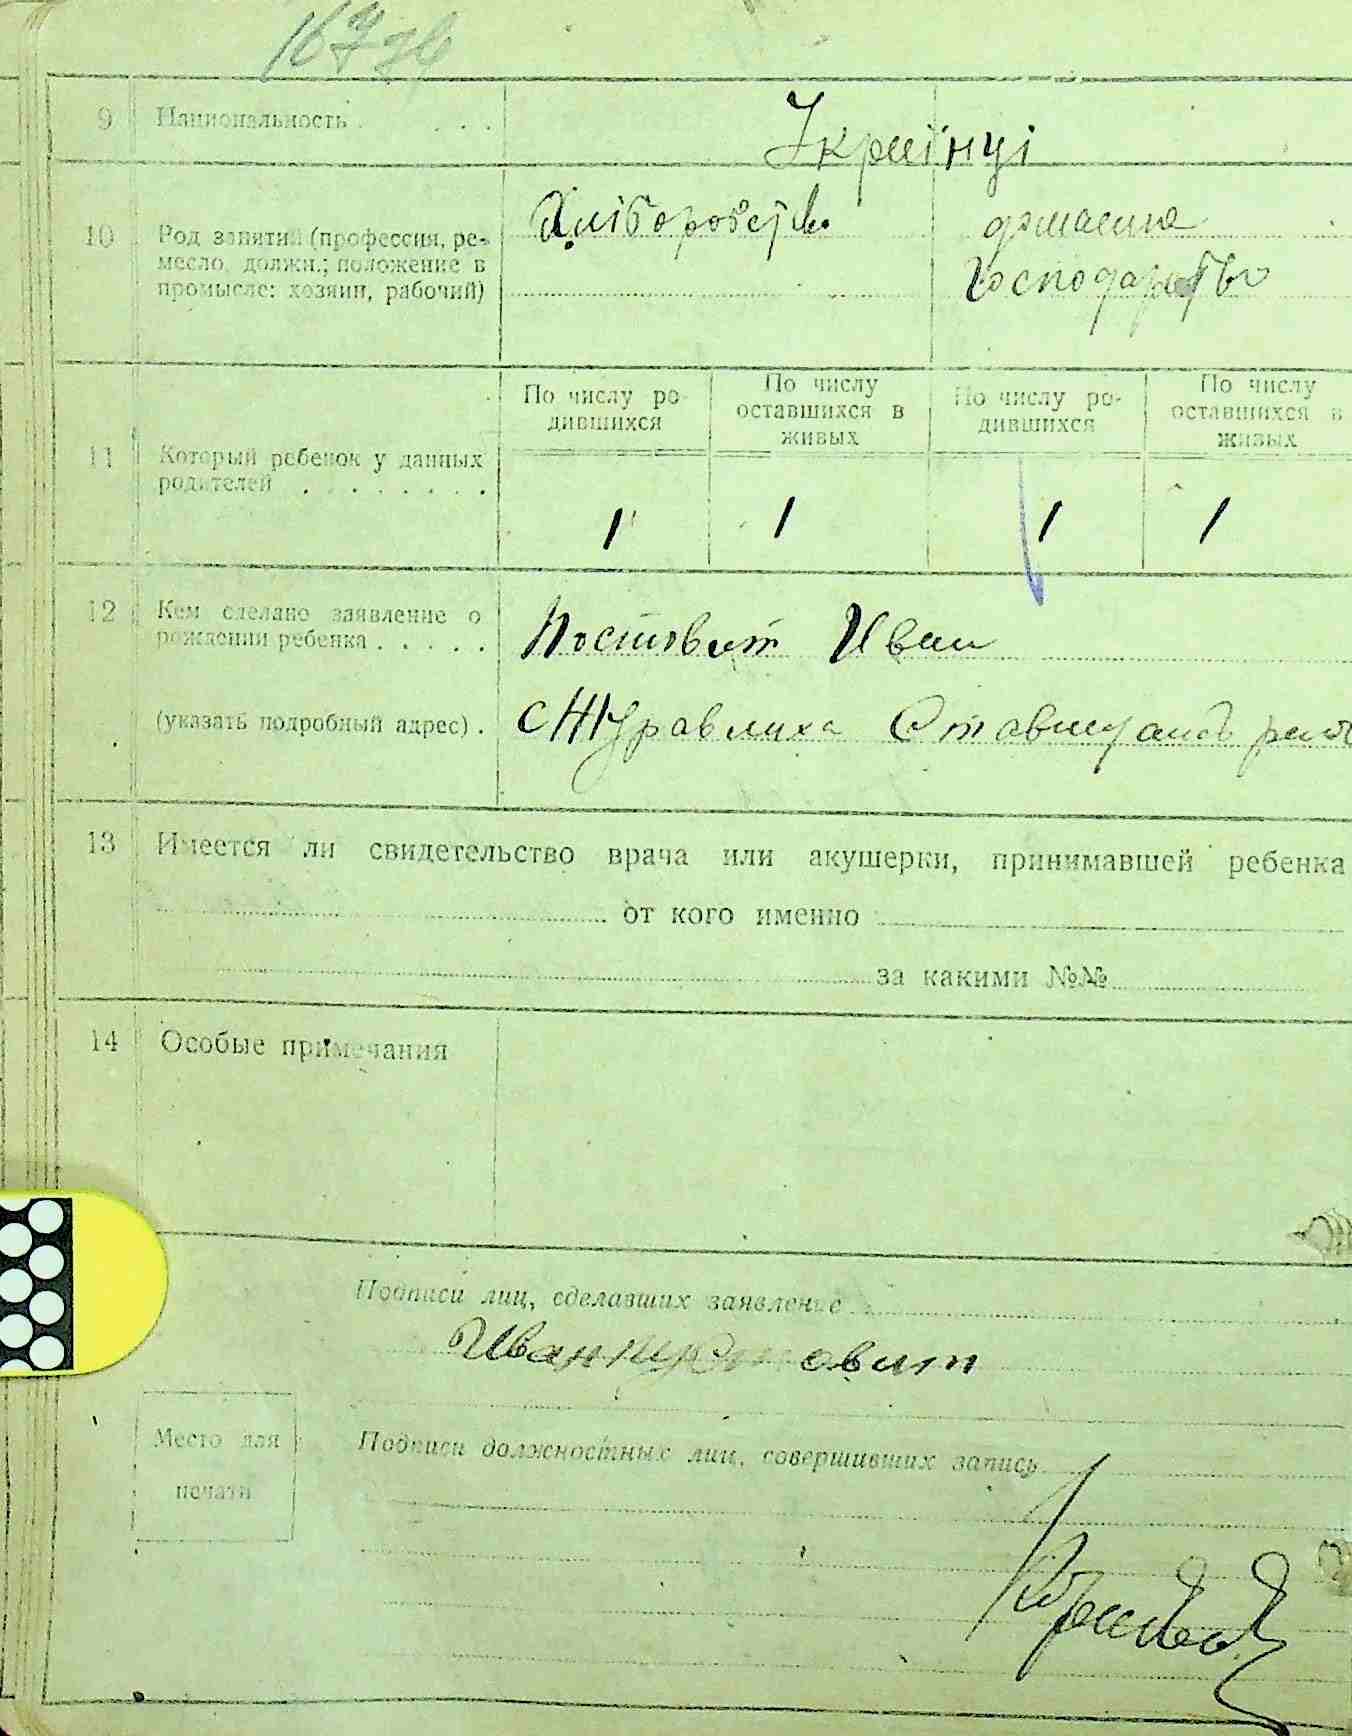 9 Национальность . . . . Українці
10 Род занятий (профессия, ре-
месло, должн.; положение в
промысле: хозяин, рабочий)
Хліборобство
домашнє
Господарство
11 Который ребенок у данных
родителей . . . . . . . .
По числу ро-
дившихся
По числу
оставшихся в
живых
По числу ро-
дившихся
По числу
оставшихся в
живых
1 1 1 1
12 Кем сделано заявление о
рождении ребенка . . . . .
Постовит Иван
(указать подробный адрес) . с Журавлиха Ставищанск
13 Имеется ли свидетельство врача или акушерки, принимавшей ребенка
от кого именно
за какими №№
14 Особые примечания
Подписи лиц, сделавших заявление
Иван
Место для
печати
Подписи должностных лиц, совершивших запись